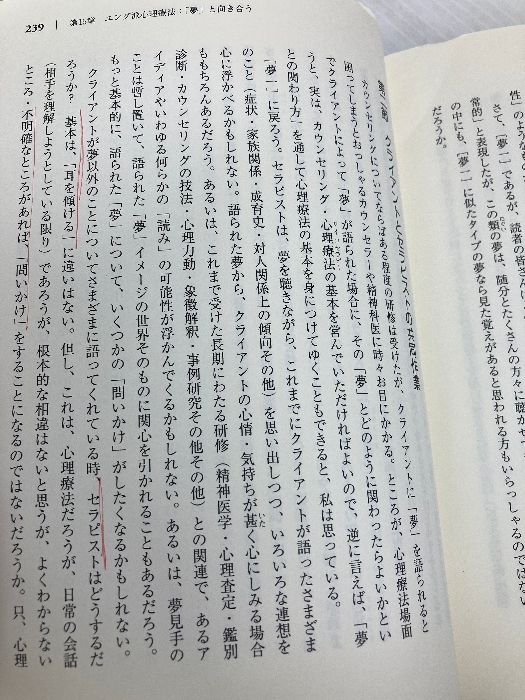 239　第15章　ユング派心理療法:「夢」と向き合う
第二節　クライアントとセラピストの共同作業
カウンセリングについてならばある程度の研修は受けたが、クライアントに「夢」を語られると
困ってしまうとおっしゃるカウンセラーや精神科医に時々お目にかかる。ところが、心理療法場面
でクライアントによって「夢」が語られた場合に、その「夢」とどのように関わったらよいかとい
うと、実は、カウンセリング・心理療法の基本を営んでいただければよいので、逆に言えば、「夢
との関わり方」を通して心理療法の基本を身につけてゆくこともできると、私は思っている。
「夢一」に戻ろう。セラピストは、夢を聴きながら、これまでにクライアントが語ったさまざま
のこと（症状・家族関係・成育史・対人関係上の傾向その他）を思い出しつつ、いろいろな連想を
心に浮かべるかもしれない。語られた夢から、クライアントの心情・気持ちが甚く心にしみる場合
ももちろんあるだろう。あるいは、これまで受けた長期にわたる研修（精神医学・心理査定・鑑別
診断・カウンセリングの技法・心理力動・象徴解釈・事例研究その他その他）との関連で、あるア
イディアやいわゆる何らかの「読み」の可能性が浮かんでくるかもしれない。あるいは、夢見手の
ことは暫し置いて、語られた「夢」イメージの世界そのものに関心を引かれることもあるだろう。
もっと基本的に、語られた「夢」について、いくつかの「問いかけ」がしたくなるかもしれない。
クライアントが夢以外のことについてさまざまに語ってくれている時、セラピストはどうするだ
ろうか？　基本は、「耳を傾ける」に違いはない。但し、これは、心理療法だろうが、日常の会話
（相手を理解しようとしている限り）であろうが、根本的な相違はないと思うが、よくわからない
ところ・不明確なところがあれば、「問いかけ」をすることになるのではないだろうか。只、心理
性」のような
さて、「夢一」であるが、読者の皆さんに
常的」と表現したが、この類の夢は、随分とたくさんの方々に聴かせ
の中にも、「夢一」に似たタイプの夢なら見た覚えがあると思われる方もいらっ
だろうか。